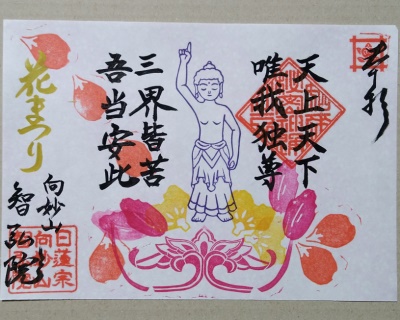 奉拝
天上天下
唯我独尊
三界皆苦
吾当安此
花まつり
向妙山
智弘院
日蓮宗
向妙山